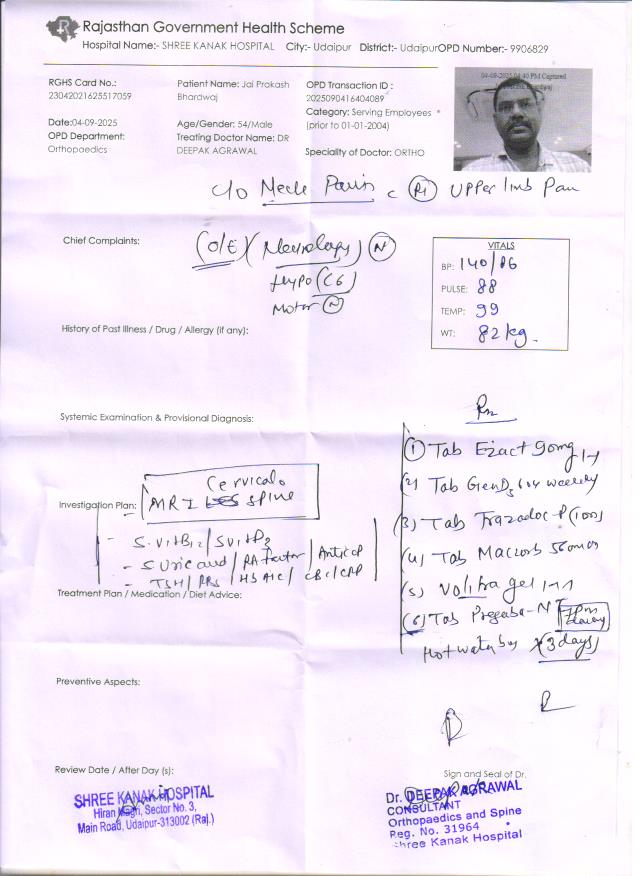 Rajasthan Government Health Scheme
Hospital Name:- SHREE KANAK HOSPITAL City:- Udaipur District:- UdaipurOPD Number:- 9906829
RGHS Card No.:
23042021625517059
Patient Name: Jai Prakash
Bhardwaj
OPD Transaction ID :
2025090416404089
Category: Serving Employees *
(prior to 01-01-2004)
Date:04-09-2025
OPD Department:
Orthopaedics
Age/Gender: 54/Male
Treating Doctor Name: DR
DEEPAK AGRAWAL
Speciality of Doctor: ORTHO
04-09-2025 04:40 PM Captured
c/o Neck Pain c Rt Upper limb Pain
Chief Complaints:
(O/E) (Neurology) N
Hypo (C6)
Motor N
VITALS
BP: 140/86
PULSE: 88
TEMP: 99
WT: 82 kg.
History of Past Illness / Drug / Allergy (if any):
Systemic Examination & Provisional Diagnosis:
Cervical
Investigation Plan: MRI Spine
- S. Vit B12 / S Vit D3
- S Uric acid / RA factor / Anti CCP
- TSH / RBS / HbA1C / CBC / CRP
Rx
(1) Tab Ezact 90mg 1-1
(2) Tab Gen D3 60k weekly
(3) Tab Trazadoc-P (100)
(4) Tab
(5) Volitra gel 1-1-1
(6) Tab Pregaba-NT
Hot water bag x (3 days)
Treatment Plan / Medication / Diet Advice:
Preventive Aspects:
Review Date / After Day (s):
SHREE KANAK HOSPITAL
Hiran Magri, Sector No. 3,
Main Road, Udaipur-313002 (Raj.)
Sign and Seal of Dr.
Dr. DEEPAK AGRAWAL
CONSULTANT
Orthopaedics and Spine
Reg. No. 31964
Shree Kanak Hospital